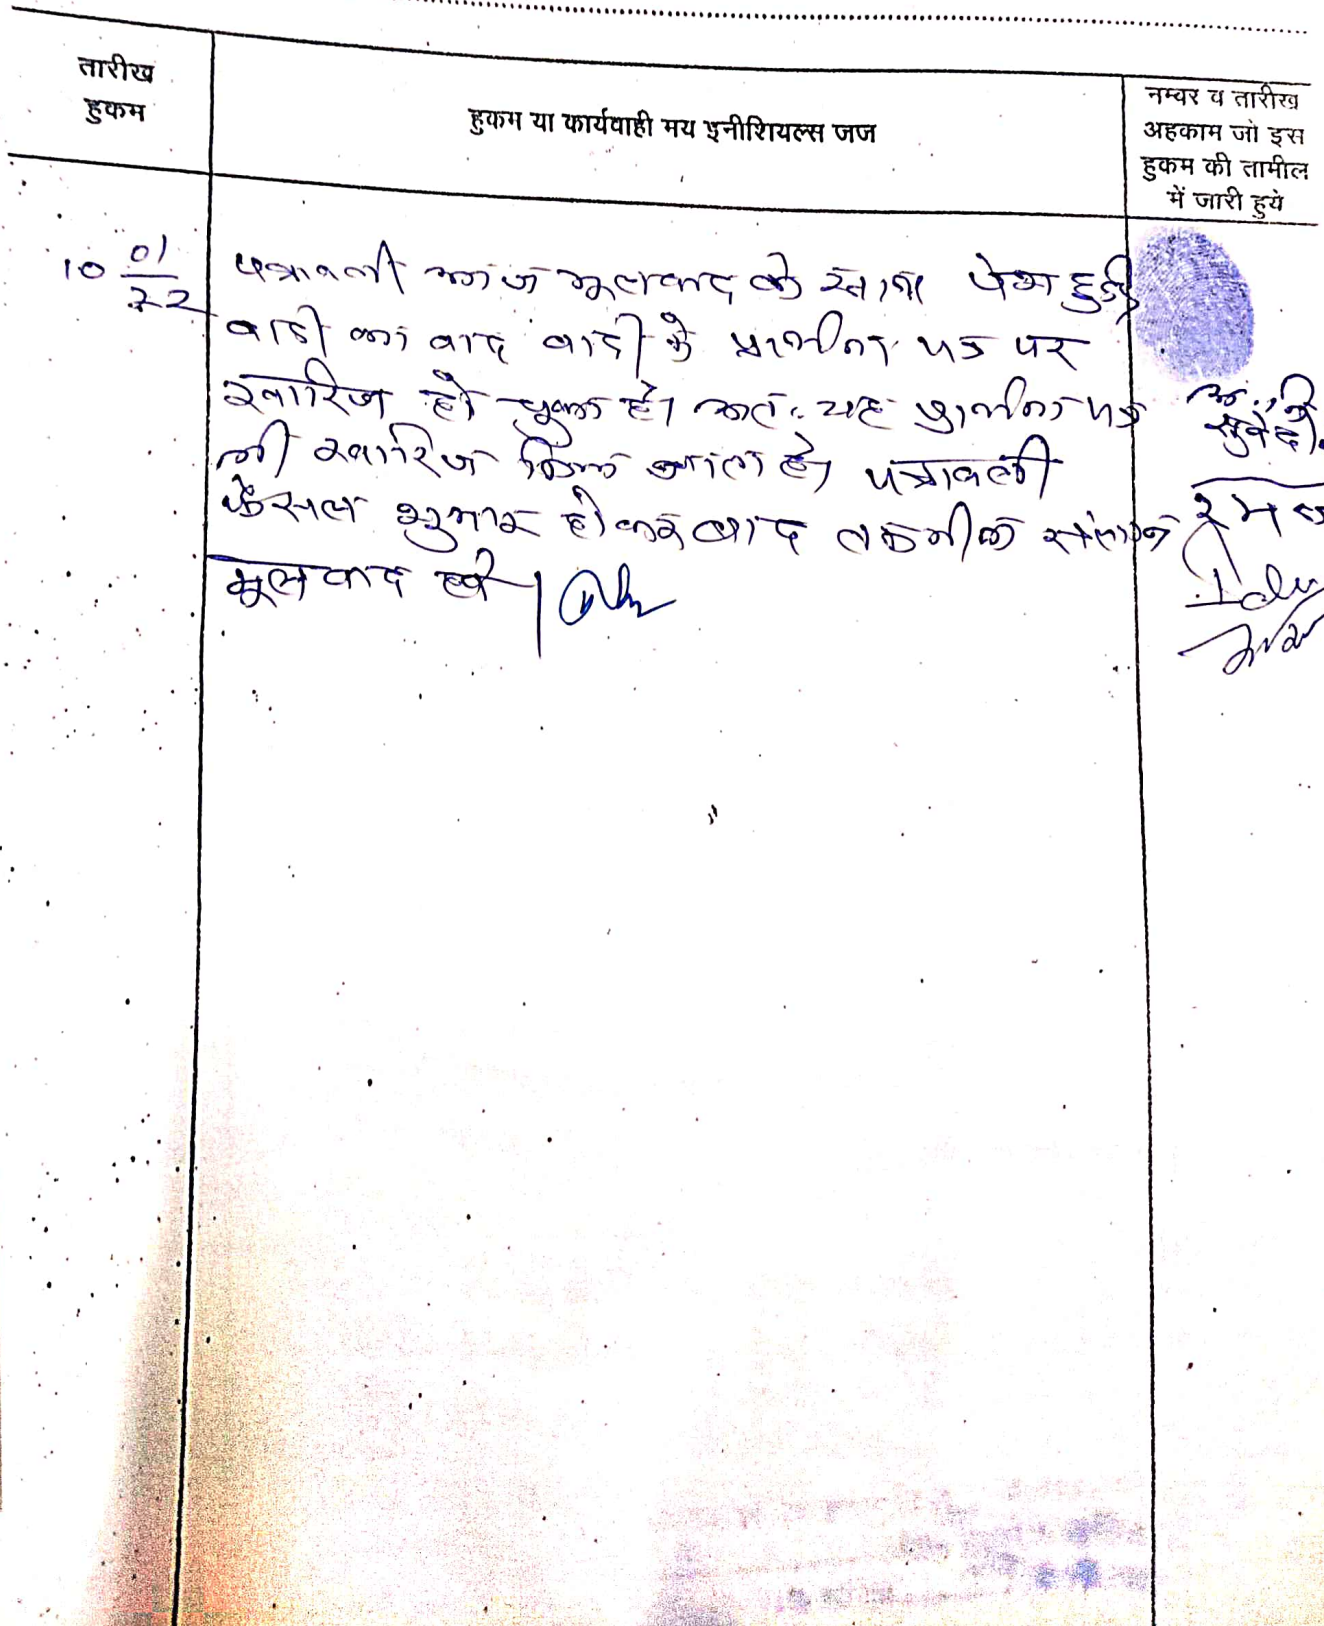 तारीख
हुकम
हुकम या कार्यवाही मय इनीशियल्स जज
नम्बर व तारीख
अहकाम जो इस
हुकम की तामील
में जारी हुये
10 01/22
पत्रावली आज मूलवाद के साथ पेश हुई
वादी का वाद वादी के प्रार्थना पत्र पर
खारिज हो चुका है। अतः यह प्रार्थना पत्र
भी खारिज किया जाता है। पत्रावली
फैसल शुमार होकर बाद तकमील संलग्न
मूलवाद हो।